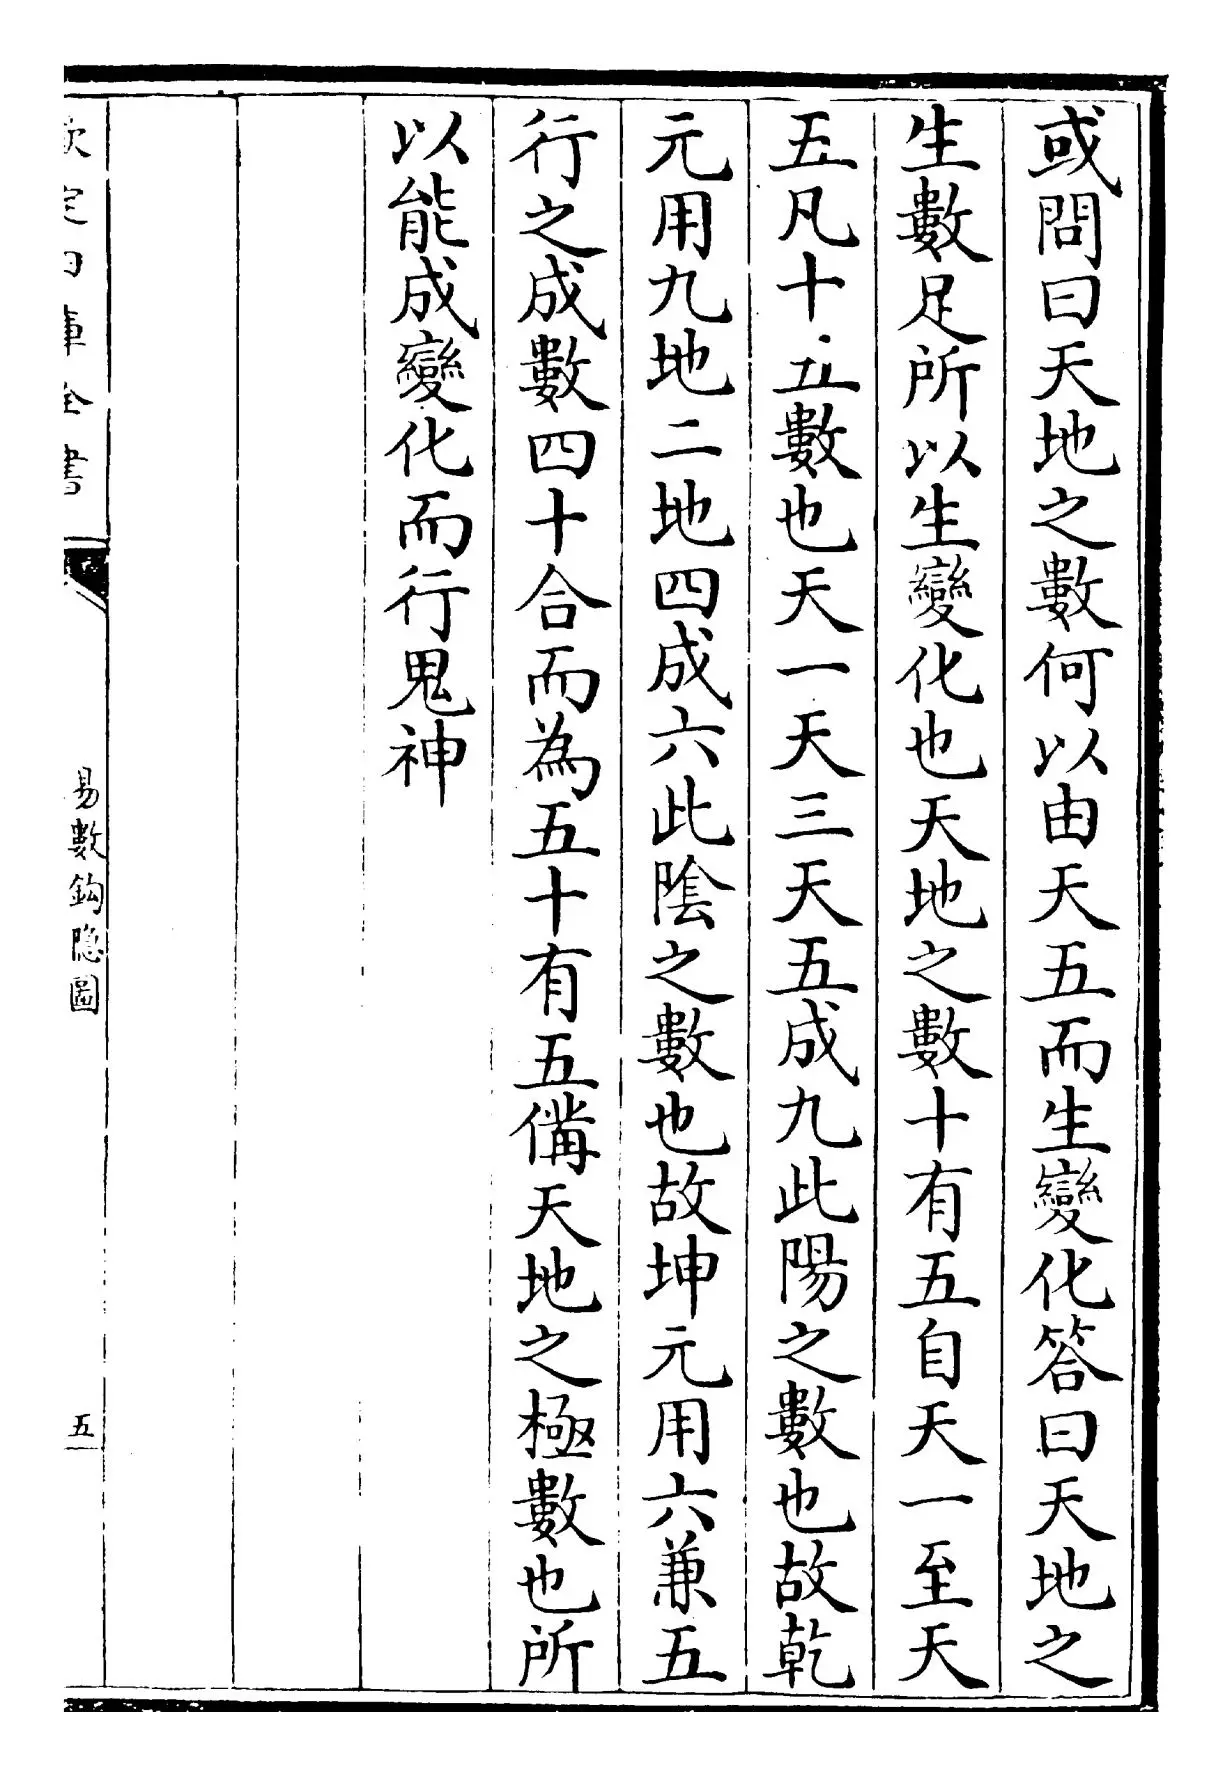 或問曰天地之數何以由天五而生變化答曰天地之
生數足所以生變化也天地之數十有五自天一至天
五凡十五數也天一天三天五成九此陽之數也故乾
元用九地二地四成六此陰之數也故坤元用六兼五
行之成數四十合而為五十有五備天地之極數也所
以能成變化而行鬼神
欽定四庫全書
易數鈎隐圖
五